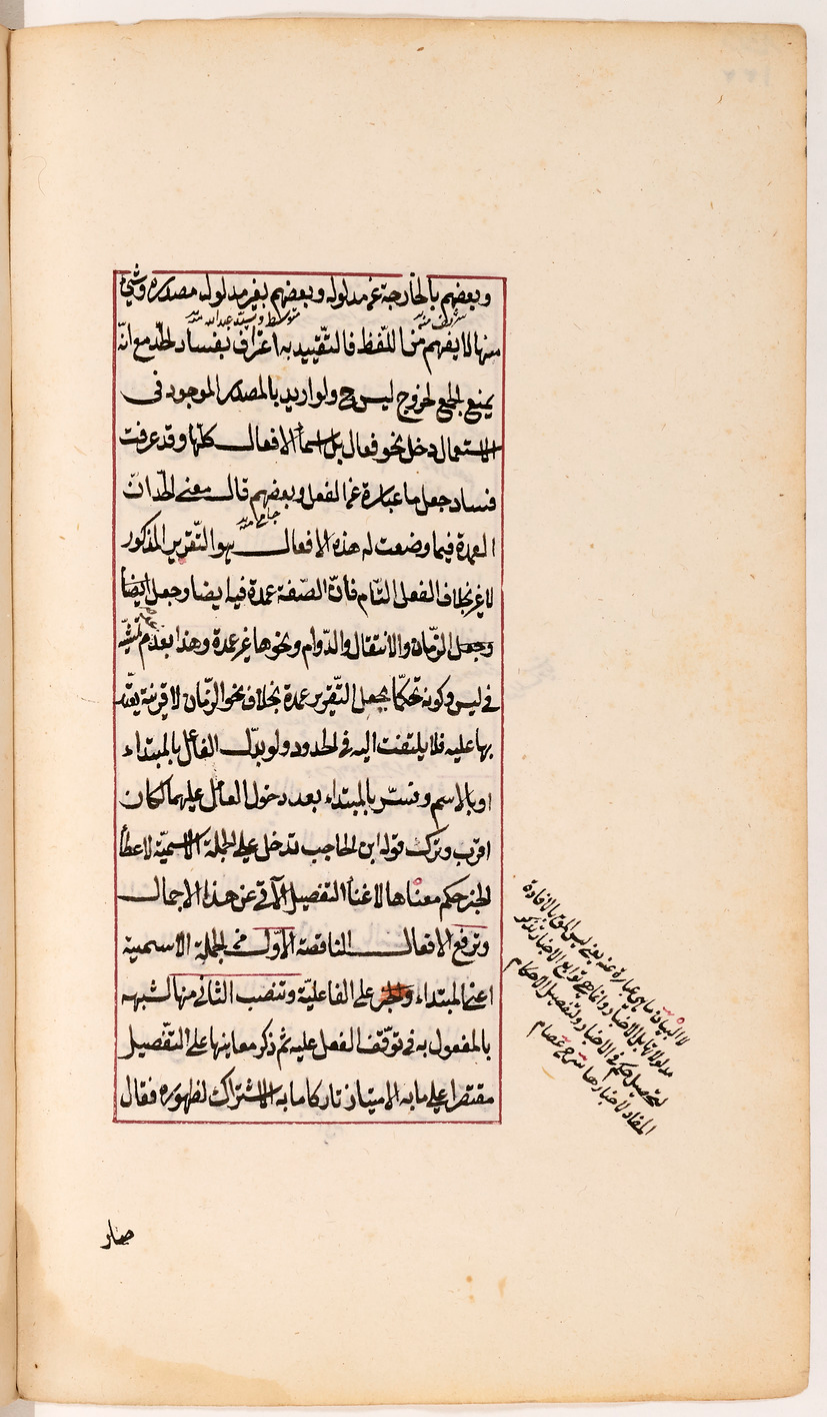 وبعضهم بالخارجة عن مدلوله وبعضهم بغير مدلوله مصدره وشئ
منها لا يفهم من اللفظ فالتقييد به اعتراف بفساد الحد مع انه
يمنع الجمع لخروج ليس ح ولو اريد بالمصدر الموجود فى
الاستعمال دخل نحو فعال بل اسماء الافعال كلها وقد عرفت
فساد جعل ما عبارة عن الفعل وبعضهم قال معنى الحد ان
العمدة فيما وضعت له هذه الافعال هو التقرير المذكور
لا غير بخلاف الفعل التام فان الصفة عمدة فيه ايضا وجعل ايضا
وجعل الزمان والانتقال والدوام ونحوها غير عمدة وهذا بعدم تمشيه
فى ليس وكونه تحكما بجعل التقرير عمدة بخلاف نحو الزمان لا قرينة يعتد
بها عليه فلا يلتفت اليه فى الحدود ولو بدل الفاعل بالمبتداء
او بالاسم وفسر بالمبتداء بعد دخول العامل عليهما لكان
اقرب وترك قوله ابن الحاجب تدخل على الجملة الاسمية لاعطاء
الخبر حكم معناها لاغناء التفصيل الآتى عن هذا الاجمال
وترفع الافعال الناقصة الاول من الجملة الاسمية
اعنى المبتداء والخبر على الفاعلية وتنصب الثانى منها لشبهه
بالمفعول به فى توقف الفعل عليه ثم ذكر معانيها على التفصيل
مقتصرا على ما به الامتياز تاركا ما به الاشتراك لظهوره فقال
متوسط وسيد عبد الله
جامى
لا البيان ما هى عبارة عنه يعنى ليس بالافادة
مدلولاتها بل الاخبار وانما هى توابع الاخبار
لتحصيل حكم فى الاخبار ولتفصيل الاحكام
المفاد لاخبارها شرح عصام
صار